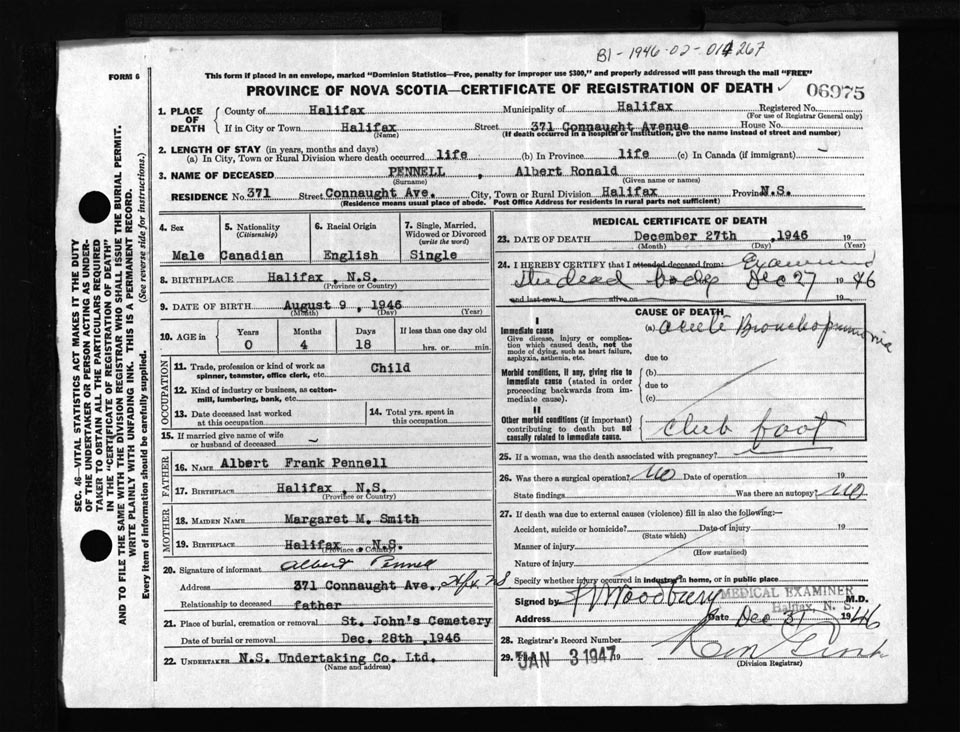 B1-1946-02-014267
FORM 6
This form if placed in an envelope, marked "Dominion Statistics—Free, penalty for improper use $300," and properly addressed will pass through the mail "FREE"
PROVINCE OF NOVA SCOTIA—CERTIFICATE OF REGISTRATION OF DEATH
06975
SEC. 46—VITAL STATISTICS ACT MAKES IT THE DUTY
OF THE UNDERTAKER OR PERSON ACTING AS UNDER-
TAKER TO OBTAIN ALL THE PARTICULARS REQUIRED
IN THE "CERTIFICATE OF REGISTRATION OF DEATH"
AND TO FILE THE SAME WITH THE DIVISION REGISTRAR WHO SHALL ISSUE THE BURIAL PERMIT.
WRITE PLAINLY WITH UNFADING INK. THIS IS A PERMANENT RECORD.
Every item of information should be carefully supplied. (See reverse side for instructions.)
1. PLACE OF DEATH
County of Halifax Municipality of Halifax Registered No.
(For use of Registrar General only)
If in City or Town Halifax Street 371 Connaught Avenue House No.
(Name) (If death occurred in a hospital or institution, give the name instead of street and number)
2. LENGTH OF STAY (in years, months and days)
(a) In City, Town or Rural Division where death occurred life (b) In Province life (c) In Canada (if immigrant)
3. NAME OF DECEASED PENNELL, Albert Ronald
(Surname) (Given name or names)
RESIDENCE No. 371 Street Connaught Ave. City, Town or Rural Division Halifax Province N.S.
(Residence means usual place of abode. Post Office Address for residents in rural parts not sufficient)
4. Sex
Male
5. Nationality
(Citizenship)
Canadian
6. Racial Origin
English
7. Single, Married,
Widowed or Divorced
(write the word)
Single
8. BIRTHPLACE Halifax, N.S.
(Province or Country)
9. DATE OF BIRTH August 9, 1946
(Month) (Day) (Year)
10. AGE in
Years Months Days If less than one day old
0 4 18 hrs. or min.
OCCUPATION
11. Trade, profession or kind of work as
spinner, teamster, office clerk, etc. Child
12. Kind of industry or business, as cotton-
mill, lumbering, bank, etc.
13. Date deceased last worked
at this occupation
14. Total yrs. spent in
this occupation
15. If married give name of wife
or husband of deceased
FATHER
16. NAME Albert Frank Pennell
17. BIRTHPLACE Halifax, N.S.
(Province or Country)
MOTHER
18. MAIDEN NAME Margaret M. Smith
19. BIRTHPLACE Halifax N.S.
(Province or Country)
20. Signature of informant Albert Pennell
Address 371 Connaught Ave., Hfx NS
Relationship to deceased father
21. Place of burial, cremation or removal St. John's Cemetery
Date of burial or removal Dec. 28th, 1946
22. UNDERTAKER N.S. Undertaking Co. Ltd.
(Name and address)
MEDICAL CERTIFICATE OF DEATH
23. DATE OF DEATH December 27th, 1946 19
(Month) (Day) (Year)
24. I HEREBY CERTIFY that I attended deceased from: Examined
the dead body Dec 27 1946
and last saw h alive on 19
CAUSE OF DEATH
I
Immediate cause
Give disease, injury or complica-
tion which caused death, not the
mode of dying, such as heart failure,
asphyxia, asthenia, etc.
(a) Acute Bronchopneumonia
due to
Morbid conditions, if any, giving rise to
immediate cause (stated in order
proceeding backwards from im-
mediate cause).
(b)
due to
(c)
II
Other morbid conditions (if important)
contributing to death but not
causally related to immediate cause.
Club foot
25. If a woman, was the death associated with pregnancy?
26. Was there a surgical operation? No Date of operation 19
State findings Was there an autopsy? No
27. If death was due to external causes (violence) fill in also the following:—
Accident, suicide or homicide? Date of injury 19
(State which)
Manner of injury
(How sustained)
Nature of injury
Specify whether injury occurred in industry, in home, or in public place
Signed by Woodbury M.D.
MEDICAL EXAMINER
Halifax, N. S.
Address Date Dec 31 1946
28. Registrar's Record Number
29. JAN 3 1947 19
(Division Registrar)